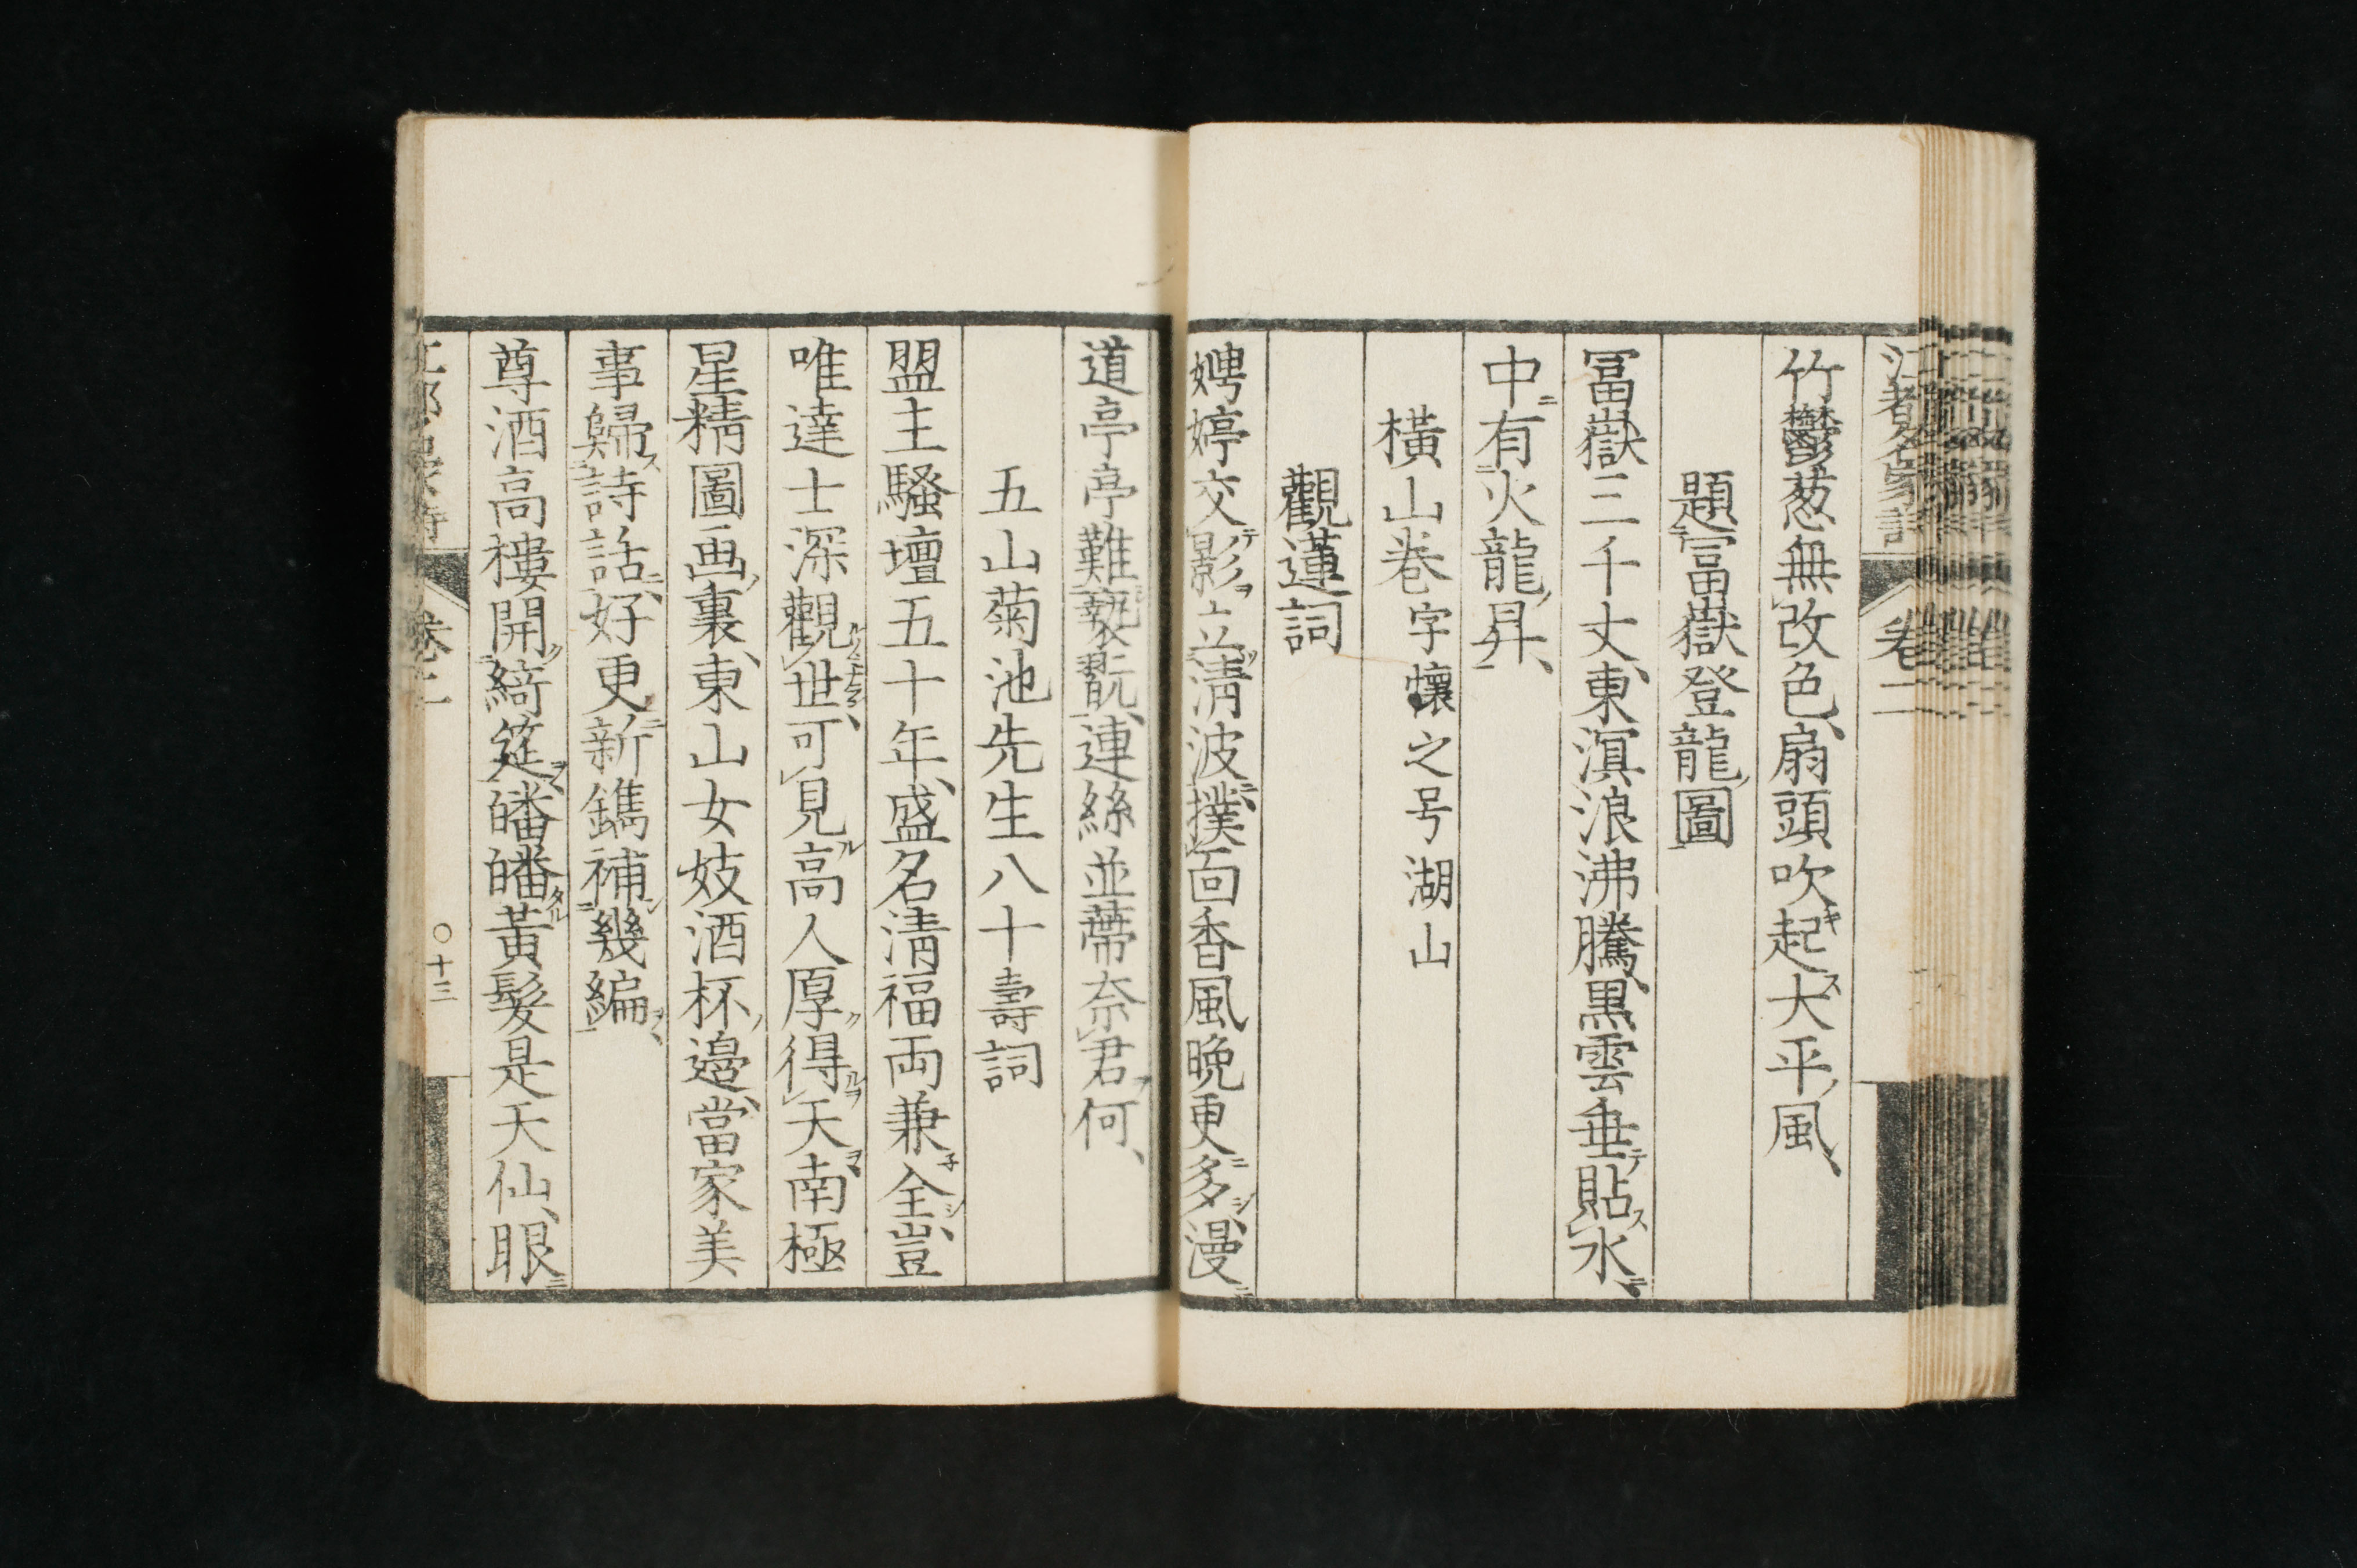 竹鬱葱無改色扇頭吹起大平風
題冨嶽登龍圖
冨嶽三千丈東溟浪沸騰黒雲垂貼水
中有火龍昇
橫山巻字懷之号湖山
觀蓮詞
娉婷交影立清波撲面香風晩更多漫
道亭亭難褻翫連絲並蔕奈君何
五山菊池先生八十壽詞
盟主騷壇五十年盛名清福両兼全豈
唯達士深觀世可見高人厚得天南極
星精圖画裏東山女妓酒杯邉當家美
事歸詩話好更新鐫補幾編
尊酒高樓開綺筵皤皤黃髮是天仙眼
卷二
十三